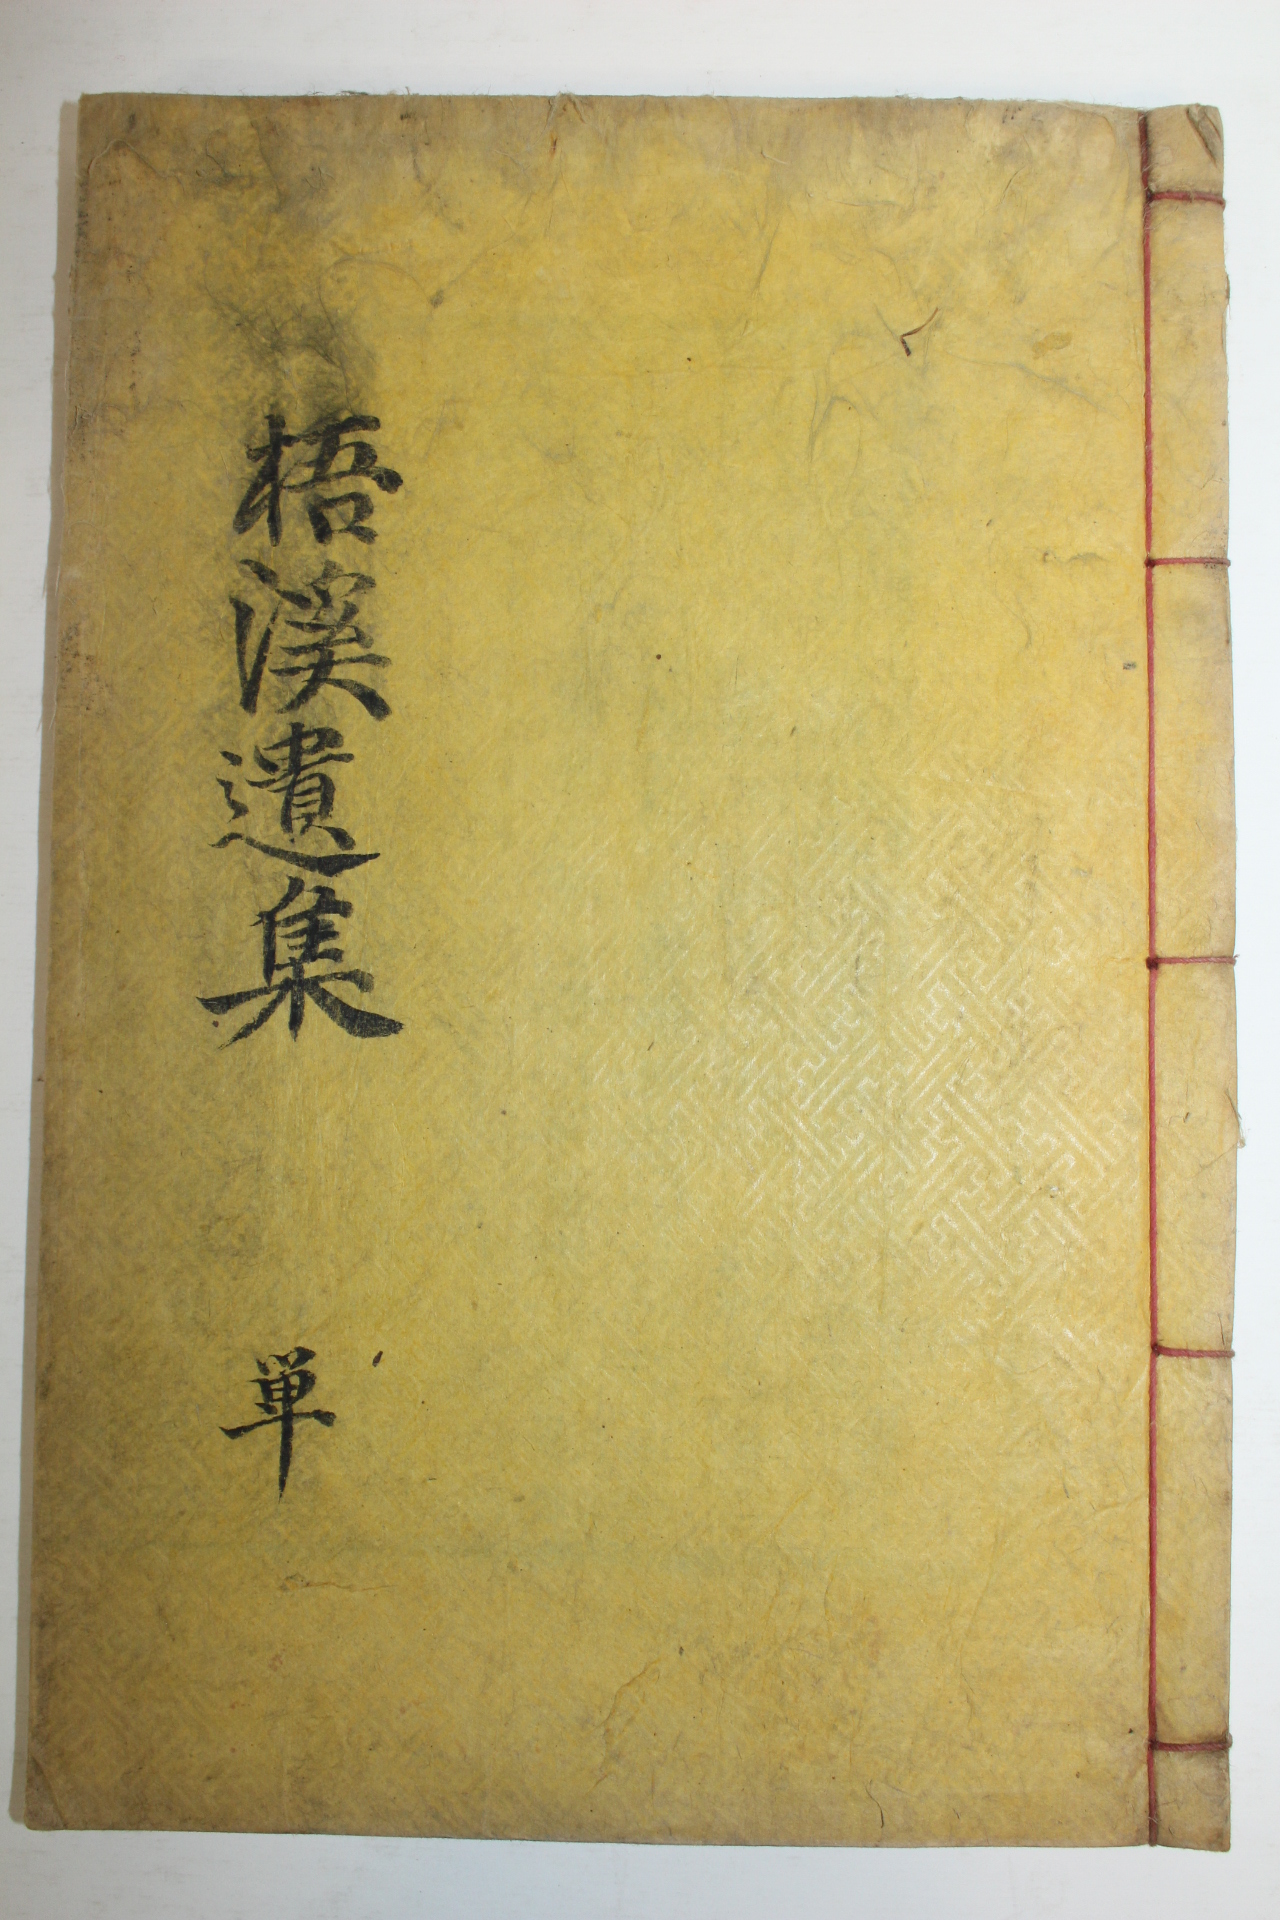 梧溪遺集
單